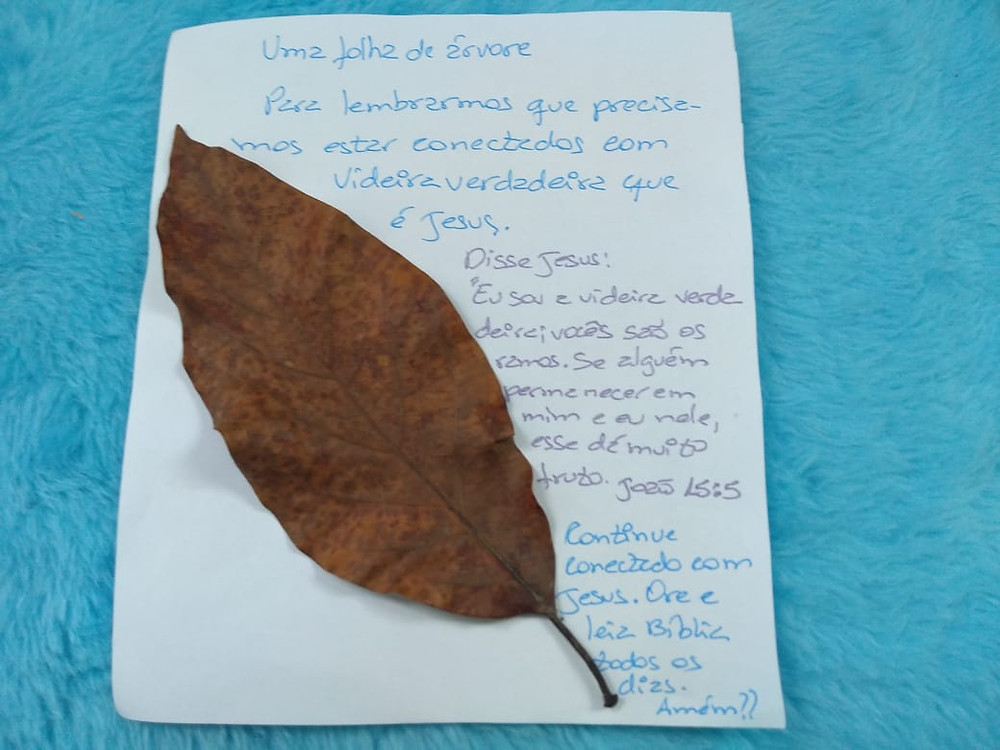 Uma folha de árvore
Para lembrarmos que precisa-
mos estar conectados com
videira verdadeira que
é Jesus.
Disse Jesus:
"Eu sou a videira verda
deira; vocês são os
ramos. Se alguém
permanecer em
mim e eu nele,
esse dá muito
fruto. João 15:5
Continue
conectado com
Jesus. Ore e
leia Bíblia
todos os
dias.
Amém??